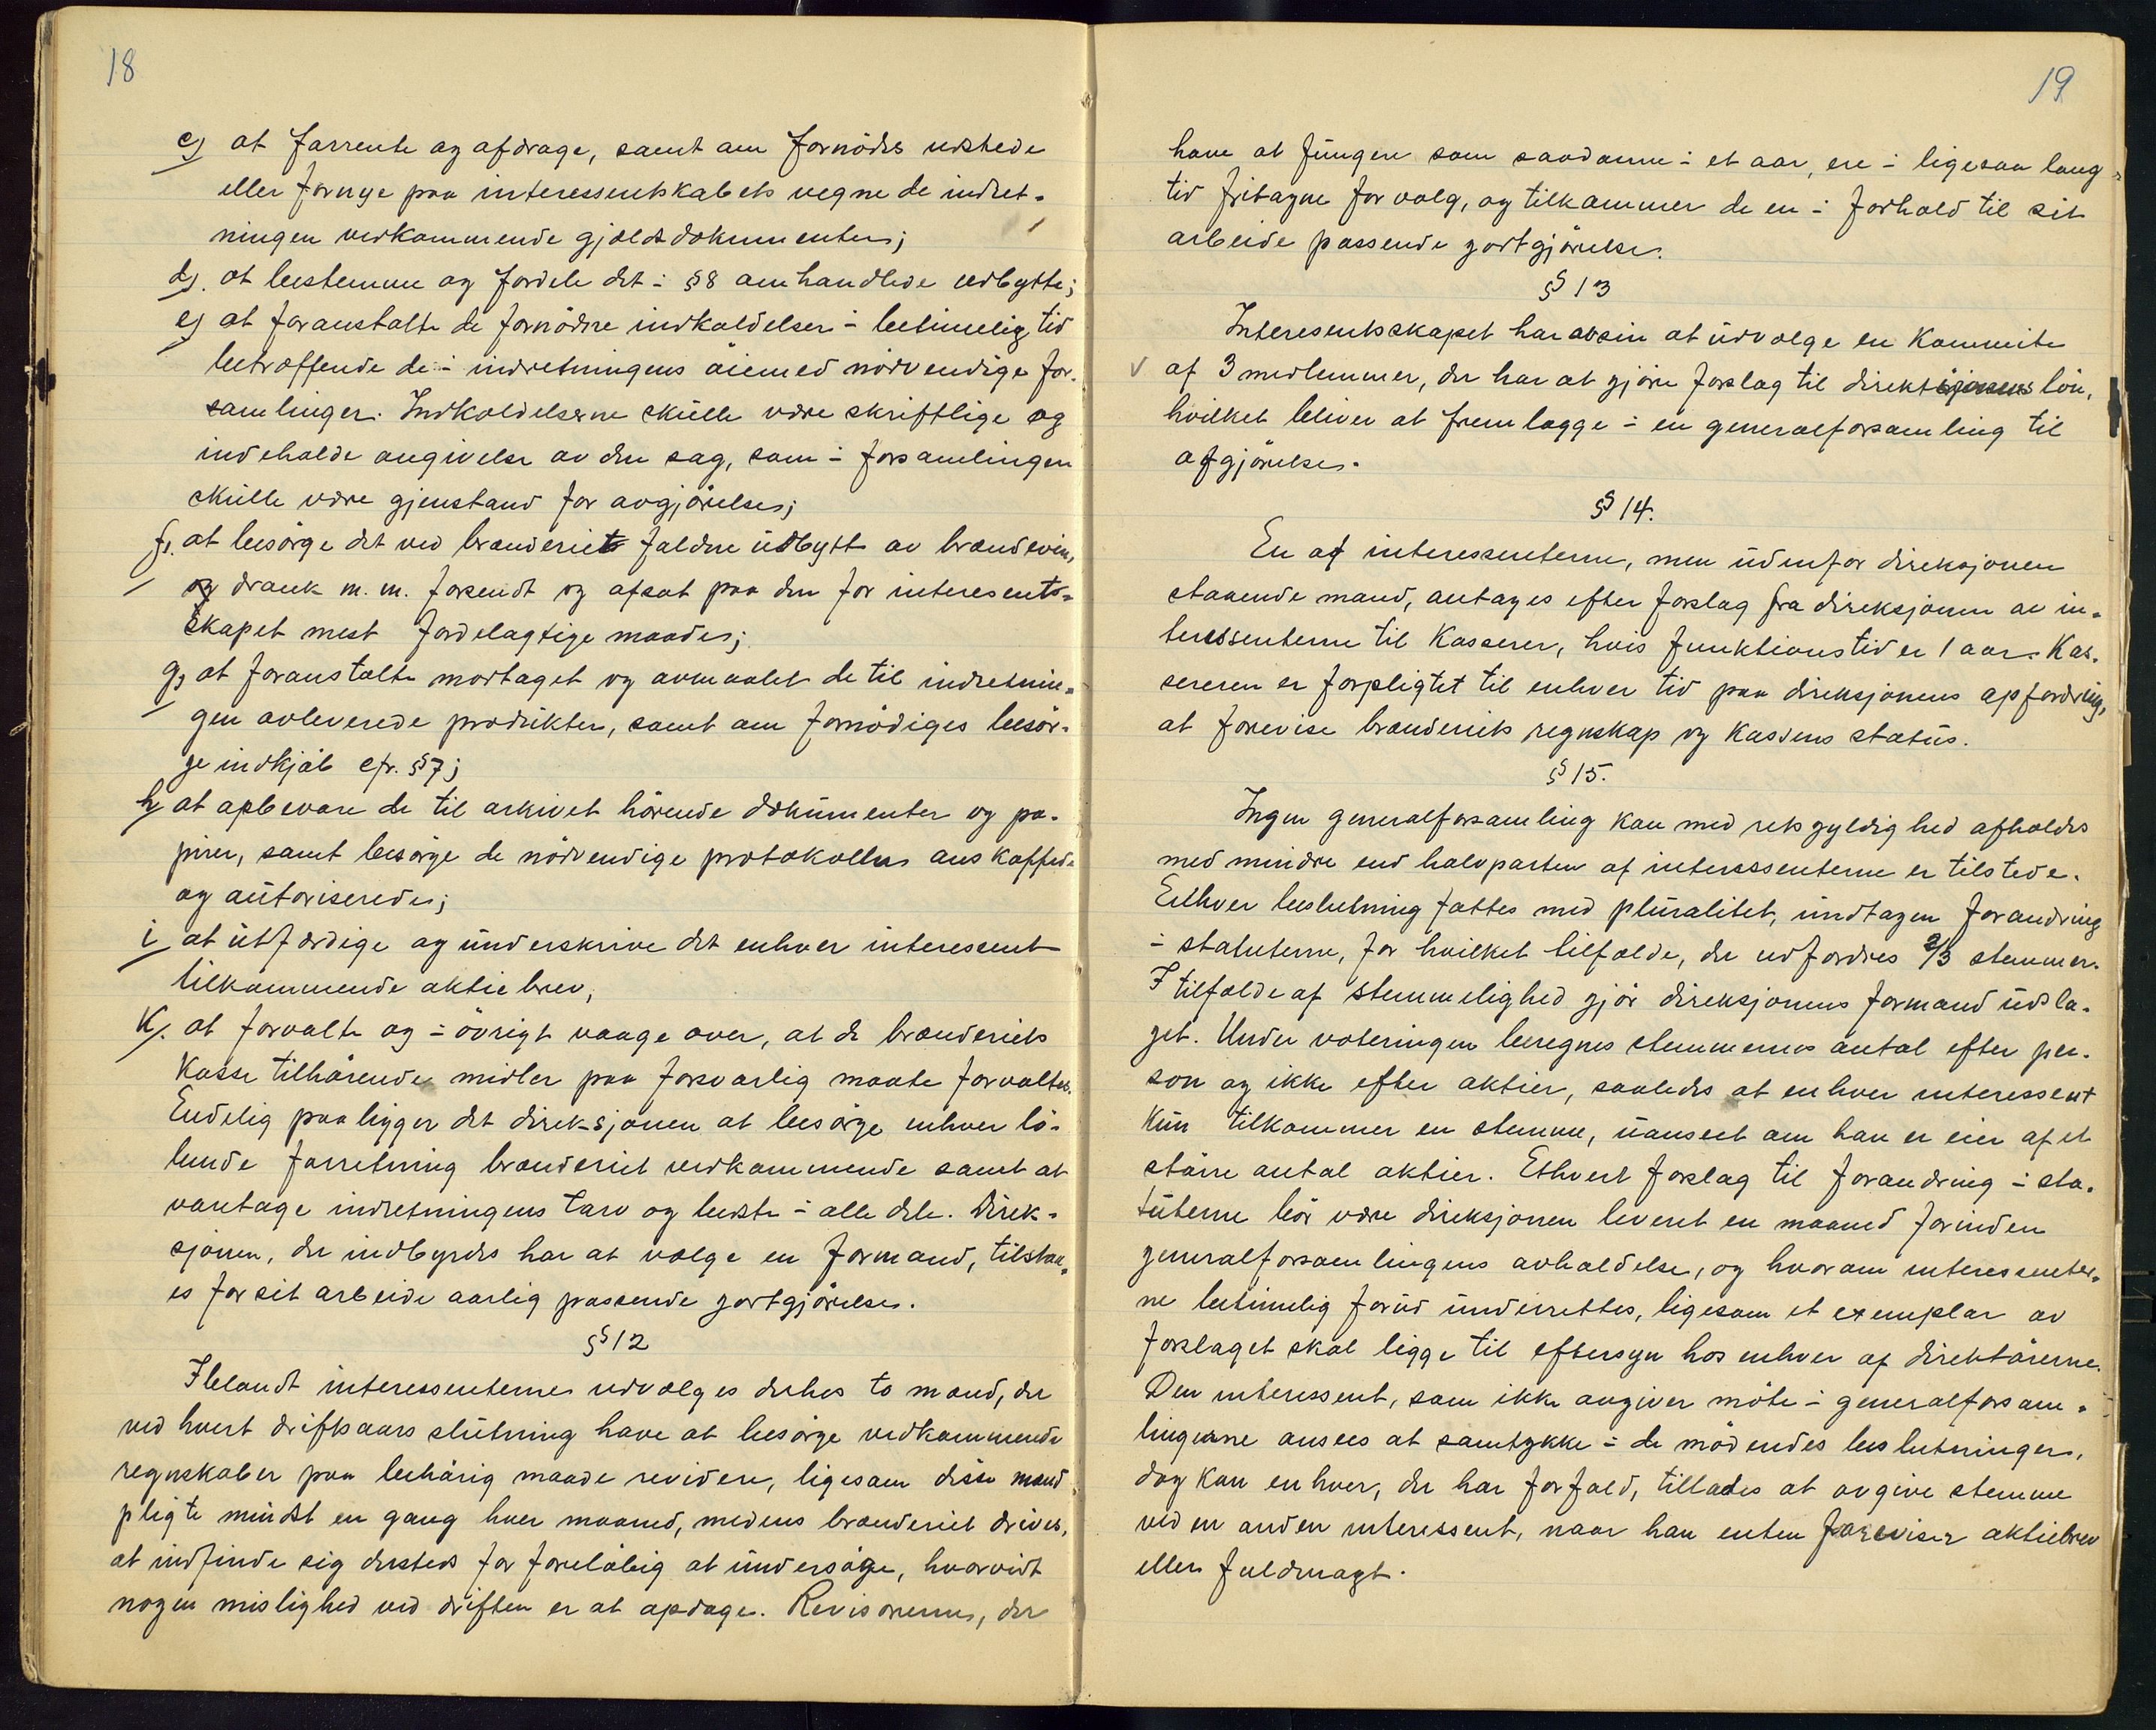 18
c) at forrente og afdrage, samt om fornödes utstede
eller fornye paa interessentskabets vegne de indret-
ningen vedkommende gjældsdokumenter;
d). at bestemme og fordele det i §8 omhandlede udbytte;
e) at foranstalte de fornödne indkaldelser i betimelig tid
betræffende de i indretningens öiemed nödvendige for-
samlinger. Indkaldelserne skulle være skriftlige og
indeholde angivelse av den sag, som i forsamlingen
skulle være gjenstand for avgjörelse;
f). at besörge det ved brænderiets faldne udbytt av brændevin,
og drank m.m. forsendt og afsat paa den for interesents-
skapet mest fordelagtige maade;
g) at foranstalte mottaget og avmaalet de til indretnin-
gen avleverede produkter, samt om fornödiges besör-
ge indkjöb cfr. §7;
h) at opbevare de til arkivet hörende dokumenter og pa-
pirer, samt besörge de nödvendige protokoller anskaffede
og autoriserede;
i) at utfærdige og underskrive det enhver interessent
tilkommende aktiebrev,
K). at forvalte og i övrigt vaage over, at de brænderiets
Kasse tilhörende midler paa forsvarlig maate forvaltes.
Endelig paaligger det direksjonen at besörge enhver lö-
bende forretning brænderiet vedkommende samt at
varetage indretningens tarv og bedste i alle dele. Direk-
sjonen, der indbyrdes har at vælge en formand, tilstaa-
es for sit arbeide aarlig passende gortgjörelse.
§12
Iblandt interessenterne udvælges derhos to mænd, der
ved hvert driftsaars slutning have at besörge vedkommende
regnskaber paa behörig maade revidere, ligesom disse mænd
pligte mindst en gang hver maaned, medens brænderiet drives,
at indfinde sig dersteds for forelöbig at undersöge, hvorvidt
nogen mislighed ved driften er at opdage. Revisorerne, der
19
have at fungere som saadanne i et aar, ere i ligesaa lang
tid fritagne for valg, og tilkommer de en i forhold til sit
arbeide passende gortgjörelse.
§13
Interesentsskapet har at udvælge en Kommite
v af 3 medlemmer, der har at gjöre forslag til direktsjonens lön,
hvilket bliver at fremlægge i en generalforsamling til
afgjörelse.
§14.
En af interessenterne, men udenfor direksjonen
staaende mand, antages efter forslag fra direksjonen av in-
teressenterne til Kasserer, hvis funktionstid er 1 aar. Kas-
sereren er forpligtet til enhver tid paa direksjonens opfordring,
at forevise brænderiets regnskap og Kassens status.
§15.
Ingen generalforsamling kan med retsgyldighed afholdes
med mindre end halvparten af interessenterne er tilstede.
Enhver beslutning fattes med pluralitet, undtagen forandring
i statuterne, for hvilket tilfælde, der udfordres 2/3 stemmer.
I tilfælde af stemmelighed gjör direksjonens formand udsla-
get. Under voteringen beregnes stemmernes antal efter per-
son og ikke efter aktier, saaledes at enhver interessent
Kun tilkommer en stemme, uanseet om han er eier af et
större antal aktier. Ethvert forslag til forandring i sta-
tuterne bör være direksjonen leveret en maaned forinden
generalforsamlingens avholdelse, og hvorom interessenter-
ne betimelig forud underrettes, ligesom et exemplar av
forslaget skal ligge til eftersyn hos enhver af direktörerne.
Den interessent, som ikke angiver möte i generalforsam-
lingerne ansees at samtykke i de mödendes beslutninger,
dog kan enhver, der har forfald, tillades at avgive stemme
ved en anden interessent, naar han enten foreviser aktiebrev
eller fuldmagt.